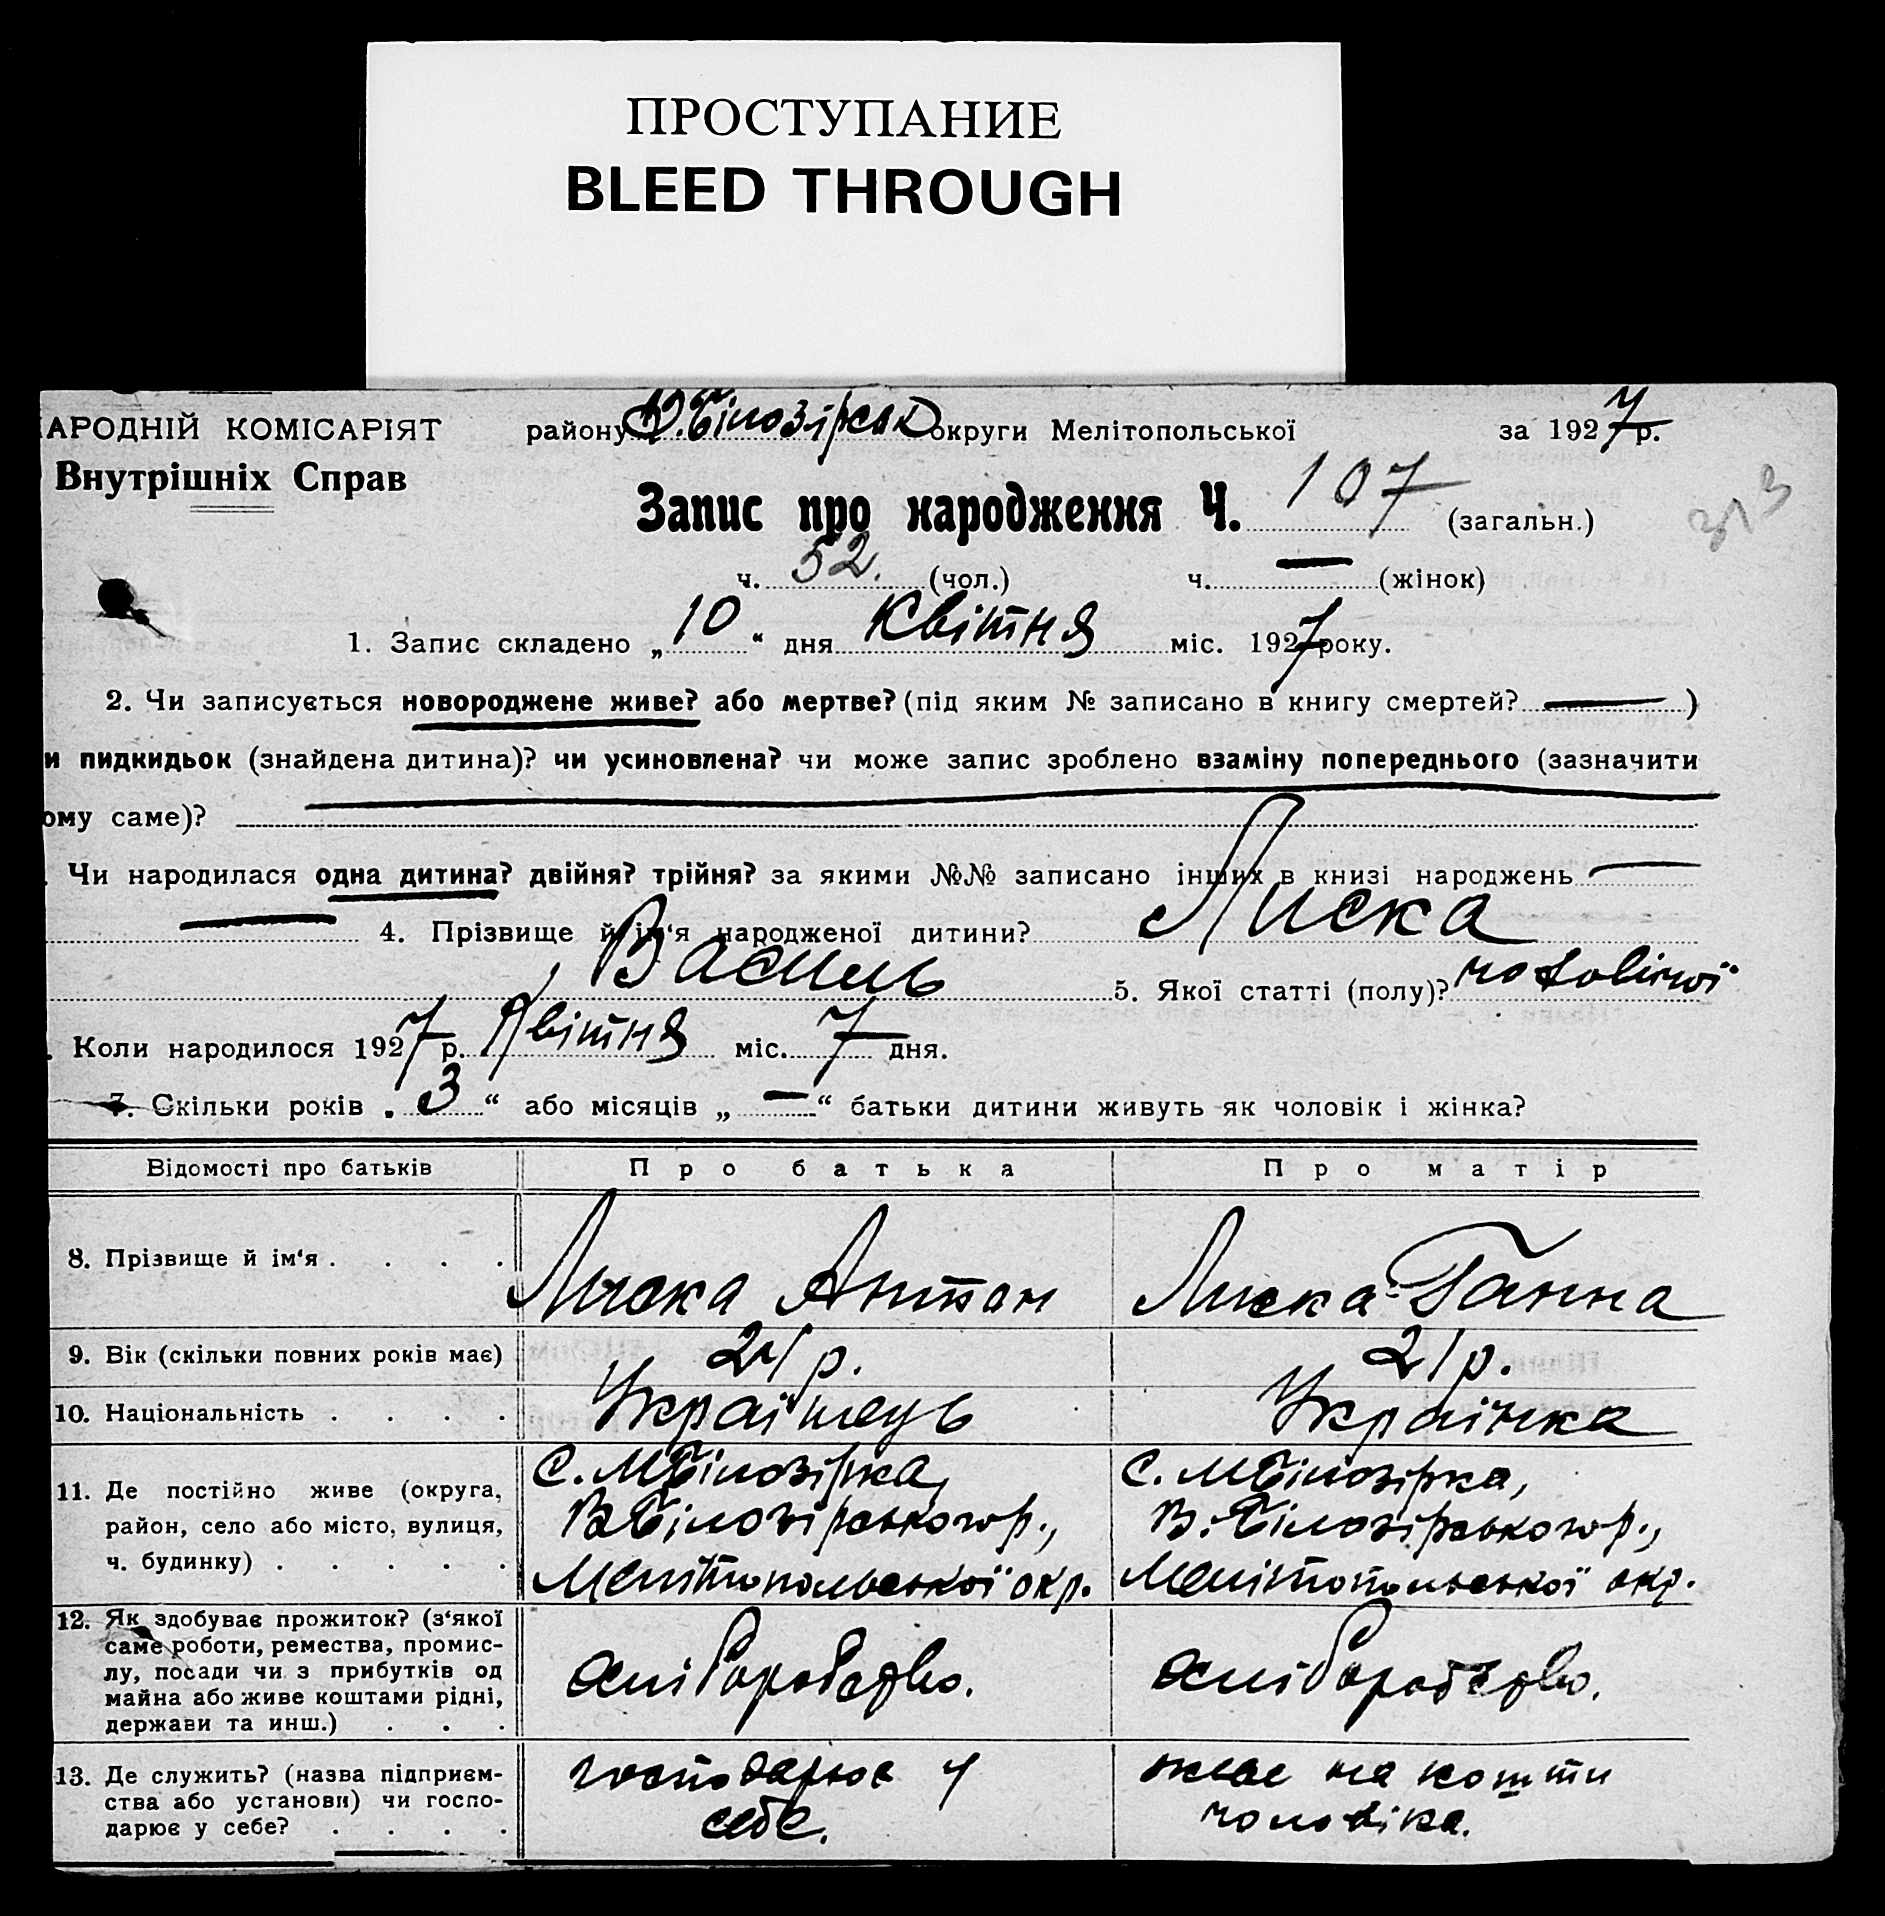 ПРОСТУПАНИЕ
BLEED THROUGH
АРОДНІЙ КОМІСАРІЯТ району В.Білозірськ округи Мелітопольської за 1927 р.
Внутрішніх Справ
Запис про народження Ч. 107 (загальн.)
313
ч. 52. (чол.) ч. — (жінок)
1. Запис складено „ 10 “ дня Квітня міс. 1927 року.
2. Чи записується новороджене живе? або мертве? (під яким № записано в книгу смертей? — )
и пидкидьок (знайдена дитина)? чи усиновлена? чи може запис зроблено взаміну попереднього (зазначити
ому саме)?
. Чи народилася одна дитина? двійня? трійня? за якими №№ записано інших в книзі народжень —
— 4. Прізвище й ім‘я народженої дитини? Лиска
Василь 5. Якої статті (полу)? чоловічої
. Коли народилося 1927 р. Квітня міс. 7 дня.
7. Скільки років „ 3 “ або місяців „ — “ батьки дитини живуть як чоловік і жінка?
Відомості про батьків Про батька Про матір
8. Прізвище й ім‘я . . . . Лиска Антон Лиска Ганна
9. Вік (скільки повних років має) р. 21 р.
10. Національність . . . . Українець Українка
11. Де постійно живе (округа, район, село або місто, вулиця, ч. будинку) . . . . .
С. М Білозірка, С. М Білозірка,
В Білозірського р., В. Білозірського р.,
Мелітопольської окр. Мелітопольської окр.
12. Як здобуває прожиток? (з‘якої
саме роботи, ремества, промис-
лу, посади чи з прибутків од
майна або живе коштами рідні,
держави та инш.) . . .
хліборобство. хліборобство.
13. Де служить? (назва підприєм-
ства або установи) чи госпо-
дарює у себе? . . . .
господарює у себе. живе на кошти
чоловіка.